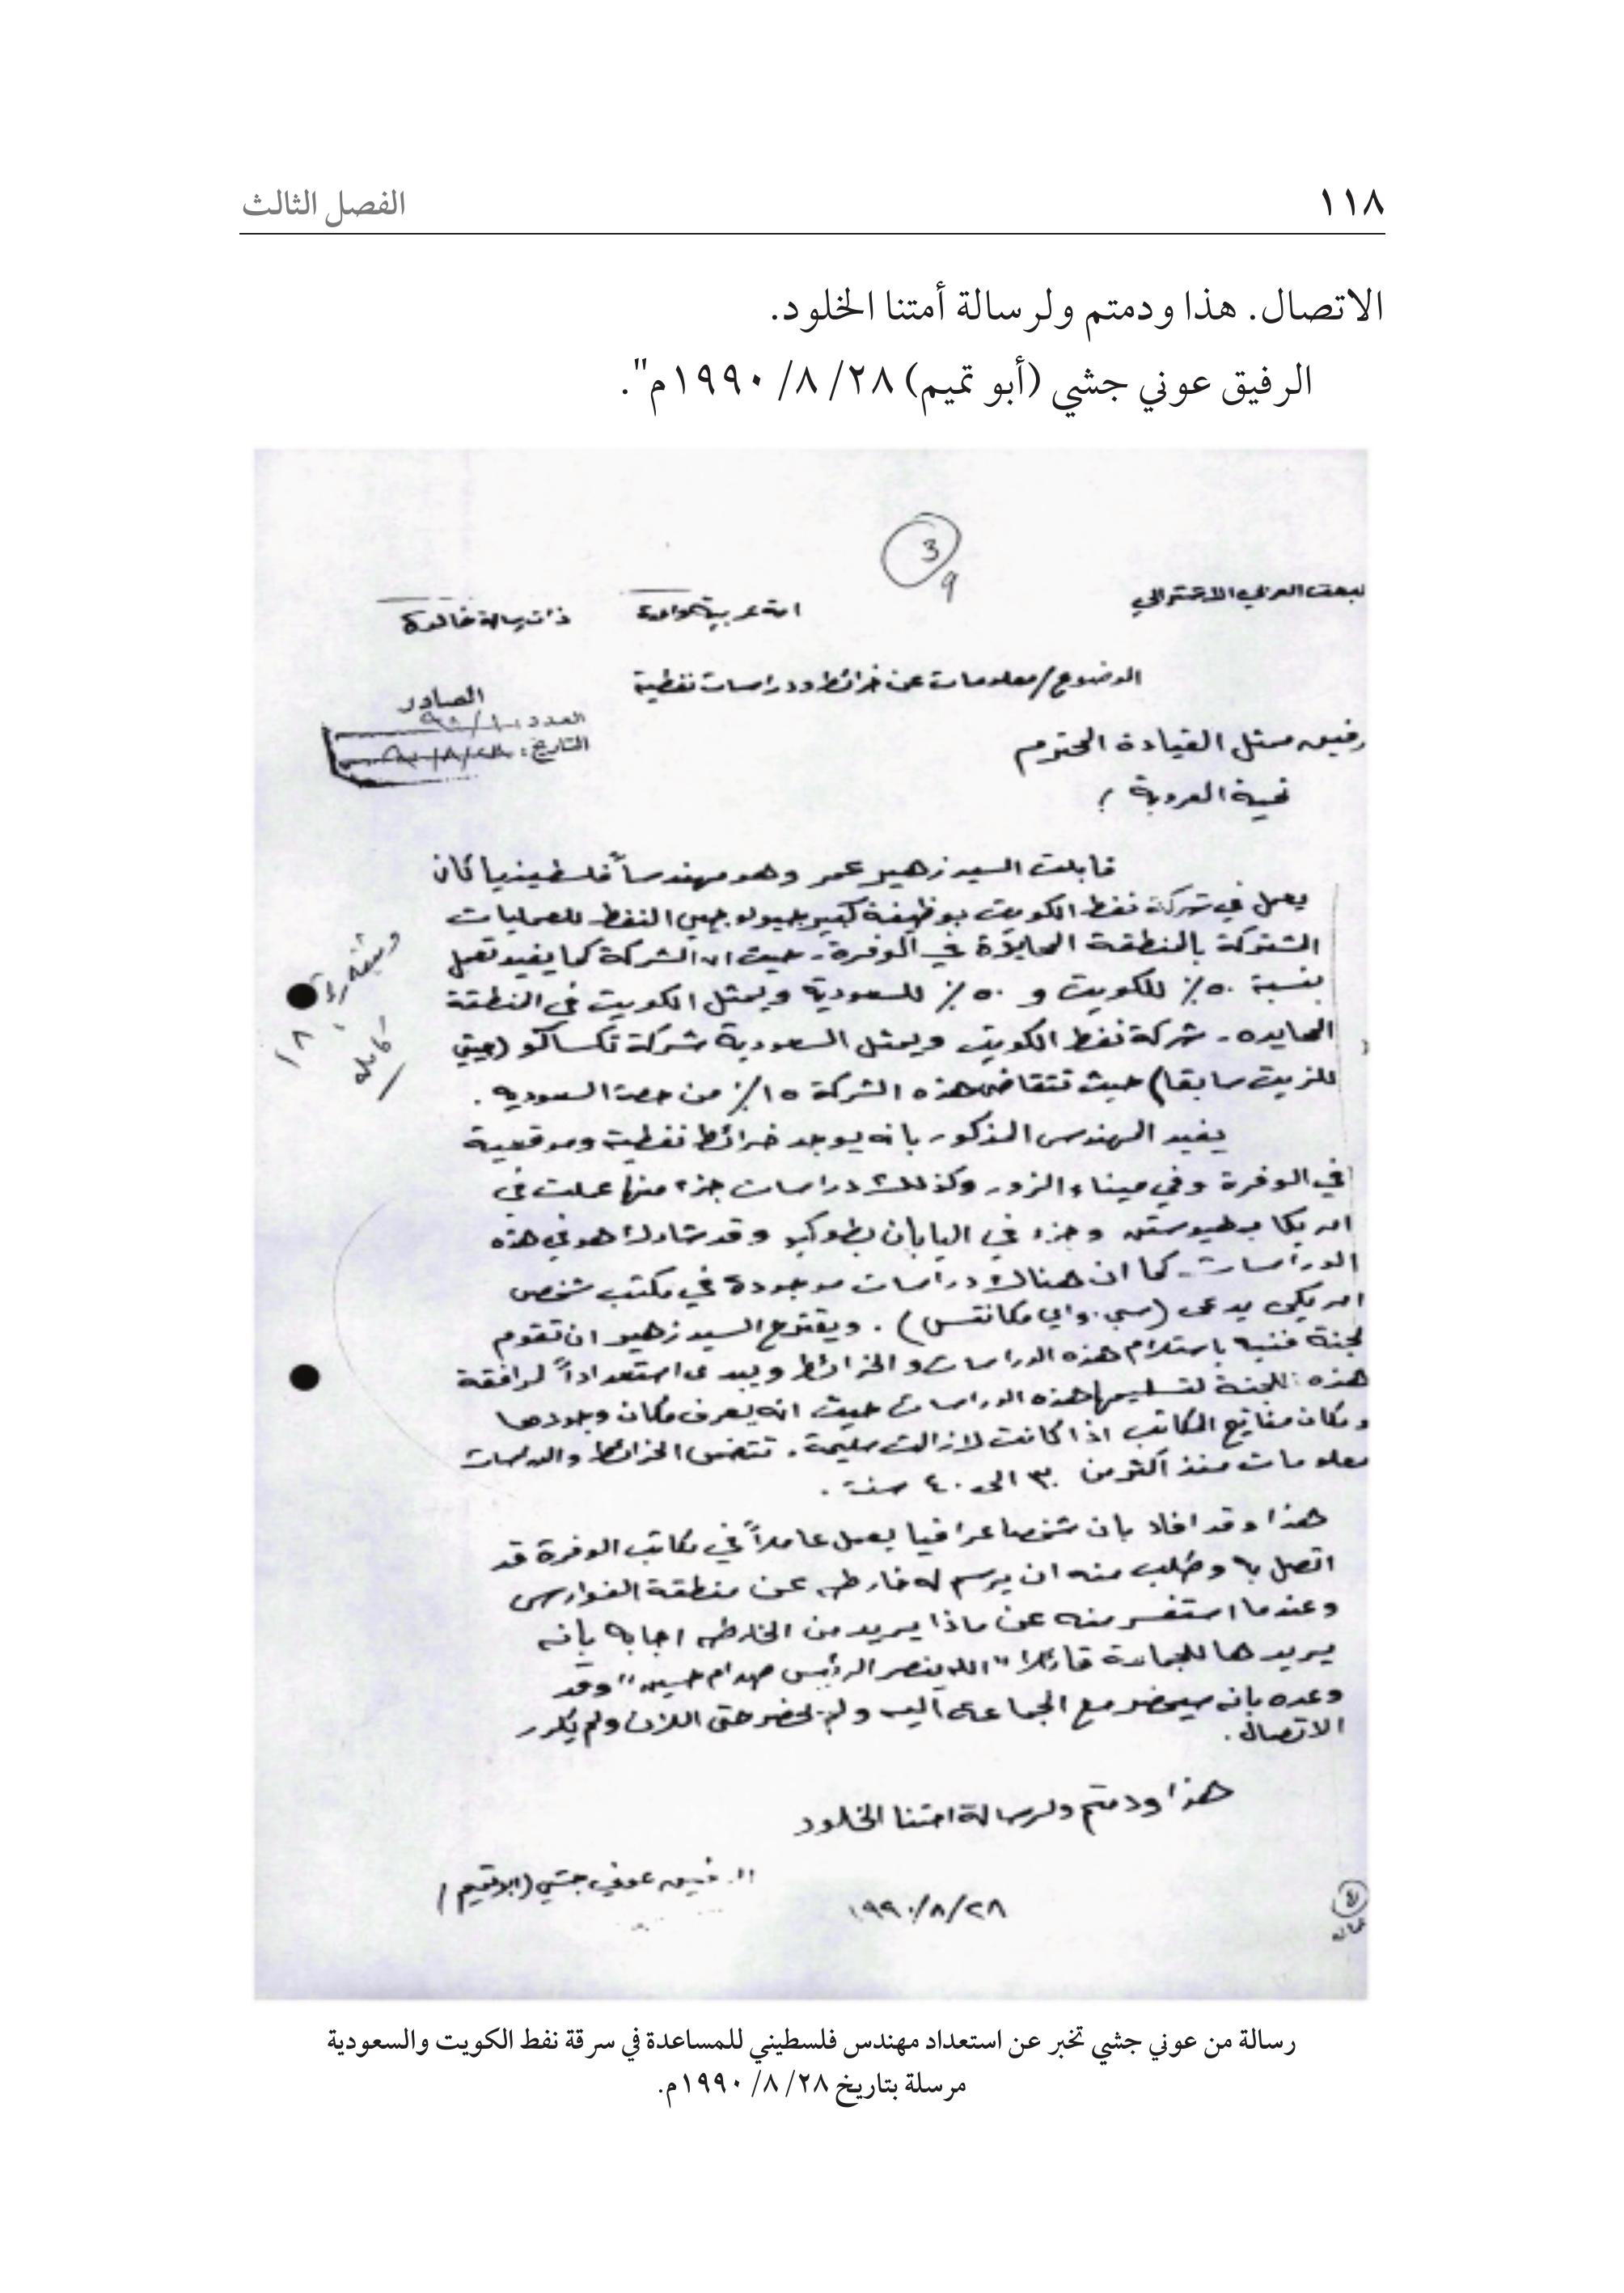 ١١٨
الفصل الثالث
الاتصال. هذا ودمتم ولرسالة أمتنا الخلود.
الرفيق عوني جشي (أبو تميم) ٢٨/ ٨/ ١٩٩٠م".
3
9
لبعث العربي الاشتراكي
امة عربية واحدة
ذات رسالة خالدة
الموضوع/ معلومات عن خرائط ودراسات نفطية
الصادر
العدد:
التاريخ:
رفيق ممثل القيادة المحترم
تحية العروبة ؛
قابلت السيد زهير عمر وهو مهندساً فلسطينيا كان
يعمل في شركة نفط الكويت بوظيفة كبير جيولوجيي النفط للعمليات
المشتركة بالمنطقة المحايدة في الوفرة - حيث ان الشركة كما يفيد تعمل
بنسبة ٥٠٪ للكويت و ٥٠٪ للسعودية ويمثل الكويت في المنطقة
المحايده - شركة نفط الكويت ويمثل السعودية شركة تكساكو (جيتي
للزيت سابقا) حيث تتقاضى هذه الشركة ١٥٪ من حصة السعوديه .
يفيد المهندس المذكور بانه يوجد خرائط نفطية وموقعية
في الوفرة وفي ميناء الزور وكذلك دراسات جزء منها عملت في
امريكا بهيوستن وجزء في اليابان بطوكيو وقد شارك هو في هذه
الدراسات - كما ان هناك دراسات موجودة في مكتب شخص
امريكي يدعى (سي. واي مكانتس) . ويقترح السيد زهير ان تقوم
لجنة فنيه باستلام هذه الدراسات والخرائط ويبدى استعداداً لمرافقة
هذه اللجنة لتسليمها هذه الدراسات حيث انه يعرف مكان وجودها
ومكان مفاتيح المكاتب اذا كانت لازالت سليمة . تتضمن الخرائط والدراسات
معلومات منذ اكثر من ٣٠ الى ٤٠ سنة .
هذا وقد افاد بان شخصا عراقيا يعمل عاملاً في مكاتب الوفرة قد
اتصل به وطلب منه ان يرسم له خارطه عن منطقة الفوارس
وعندما استفسر منه عن ماذا يريد من الخارطه اجابه بأنه
يريدها للجماعة قائلا "الله ينصر الرئيس صدام حسين" وقد
وعده بانه سيحضر مع الجماعه اليه ولم يحضر حتى اللان ولم يكرر
الاتصال .
هذا ودمتم ولرسالة امتنا الخلود
الرفيق عوني جشي (ابو تميم)
١٩٩٠/٨/٢٨
رسالة من عوني جشي تخبر عن استعداد مهندس فلسطيني للمساعدة في سرقة نفط الكويت والسعودية
مرسلة بتاريخ ٢٨/ ٨/ ١٩٩٠م.